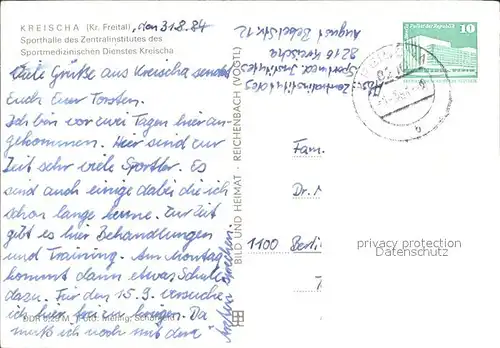 KREISCHA (Kr. Freital), den 31.8.84
Sporthalle des Zentralinstitutes des
Sportmedizinischen Dienstes Kreischa
Viele Grüße aus Kreischa sendet
Euch Euer Torsten.
Ich bin vor zwei Tagen hier an-
gekommen. Hier sind zur
Zeit sehr viele Sportler. Es
sind auch einige dabei die ich
schon lange kenne. Zur Zeit
gibt es hier Behandlungen
und Training. Am Montag
kommt dann etwas Schule
dazu. Für den 15.9. versuche
ich hier frei zu kriegen. Da
muß ich noch mit dem
sprechen.
DDR 5,29 M Foto: Mehlig,
BILD UND HEIMAT · REICHENBACH (VOGTL)
Abs.: Zentralinstitut des
Sportmed. Institutes
8216 Kreischa
August Bebelstr. 12
10
Fam.
Dr.
1100 Berli
privacy protection
watermark